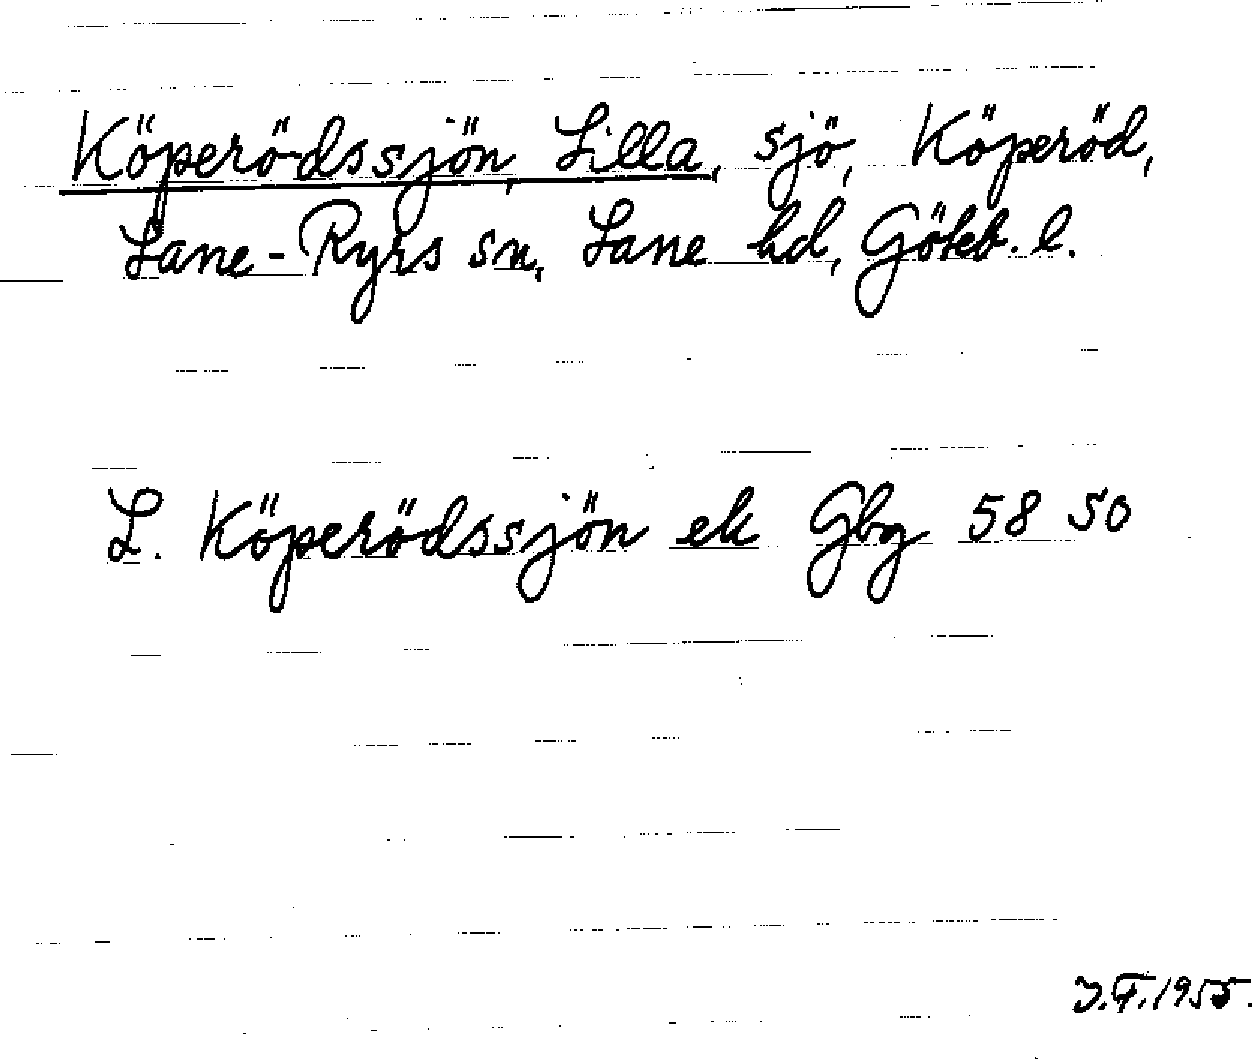 Köperödssjön, Lilla, sjö, Köperöd,
Lane-Ryrs sn, Lane hd, Göteb. l.
L. Köperödssjön ek Gbg 58 50
J.F. 1955.